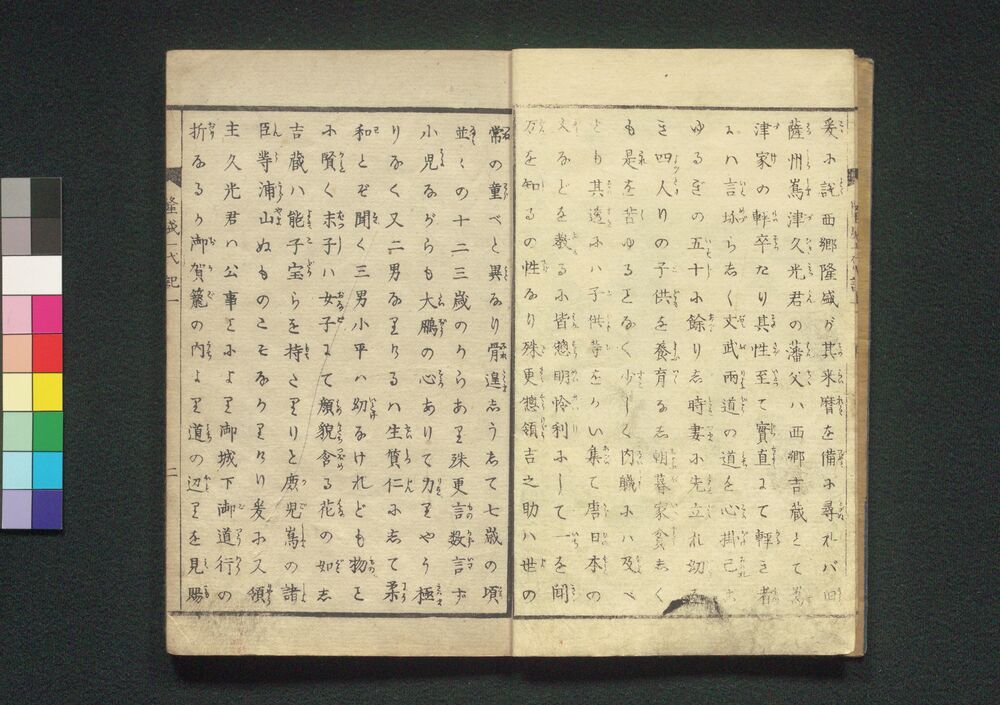 爰に説西郷隆盛が其来暦を備に尋れバ旧
薩州嶌津久光君の藩父ハ西郷吉蔵とて嶌
津家の軽卒たり其性至て實直にて軽き者
にハ言ゆるぎの五十に餘りし時妻に先立れ幼
き四人りの子供を養育なし朝暮家貧しく
も是を苦ゆるとなく少しく内職にハ及べ
ども其透にハ子供等をかい集て唐日本の
文などを教るに皆惣明怜利にして一を聞
万を知るの性なり殊更惣領吉之助ハ世の
常の童べと異なり骨遑しうして七歳の頃
並々の十二三歳のからあり殊更言数言ず
小児ながらも大鵬の心ありて力りやう極
りなく又二男なりけるハ生質仁にして柔
和とぞ聞く三男小平ハ幼なけれども物と
に賢く末子ハ女子にて顔貌含る花の如し
吉蔵ハ能子宝らを持たりりと鹿児嶌の諸
臣等浦山ぬものこそなかりけり爰に又領
主久光君ハ公事とにより御城下御道行の
折なるか御賀籠の内より道の辺りを見賜
隆盛一代記一
二